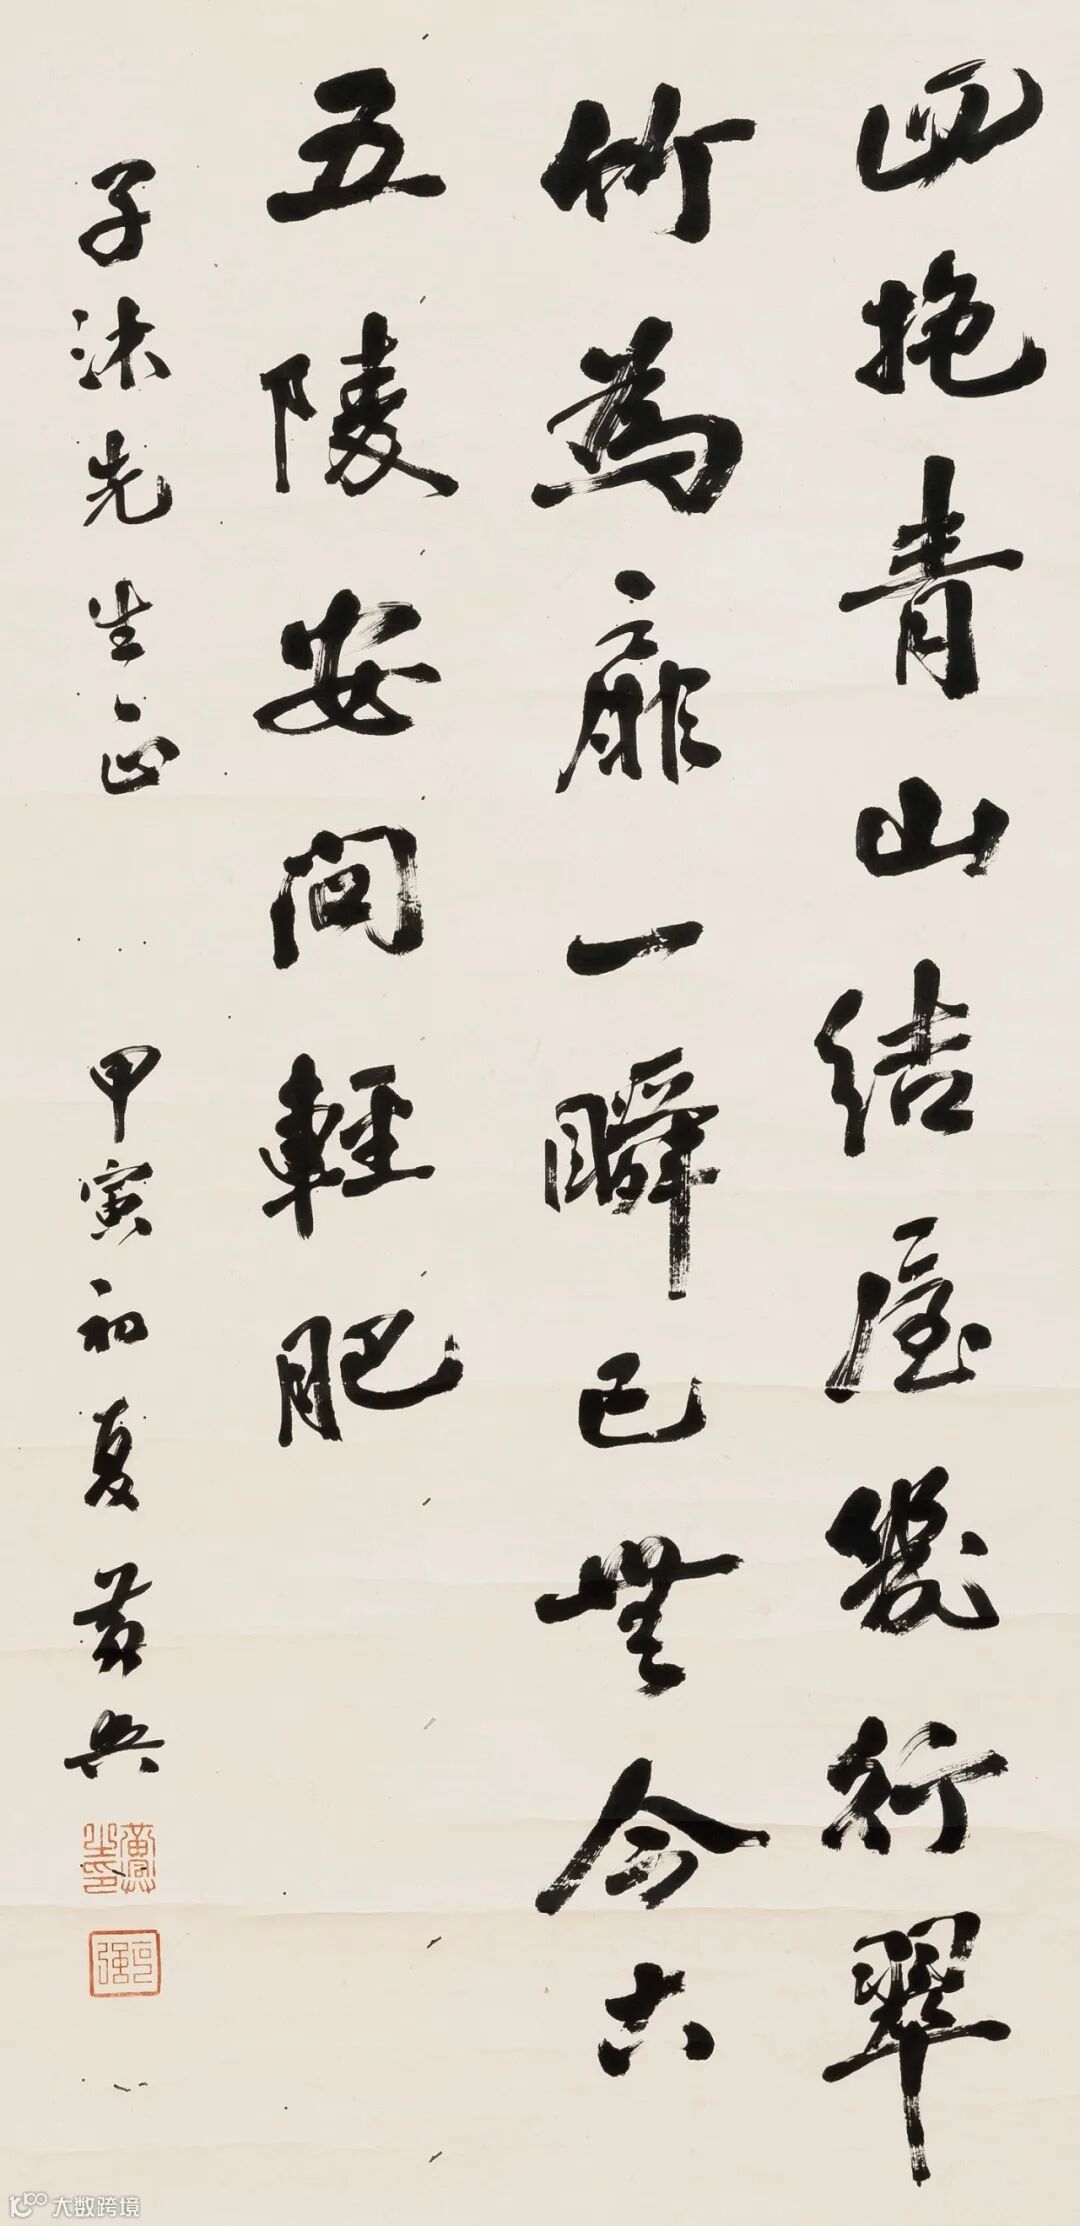 抱青山結屋幾行翠
竹為扉一瞬已無今古
五陵安問輕肥
子沐先生正
甲寅初夏 黃興
黃興之印
克強
大数跨境